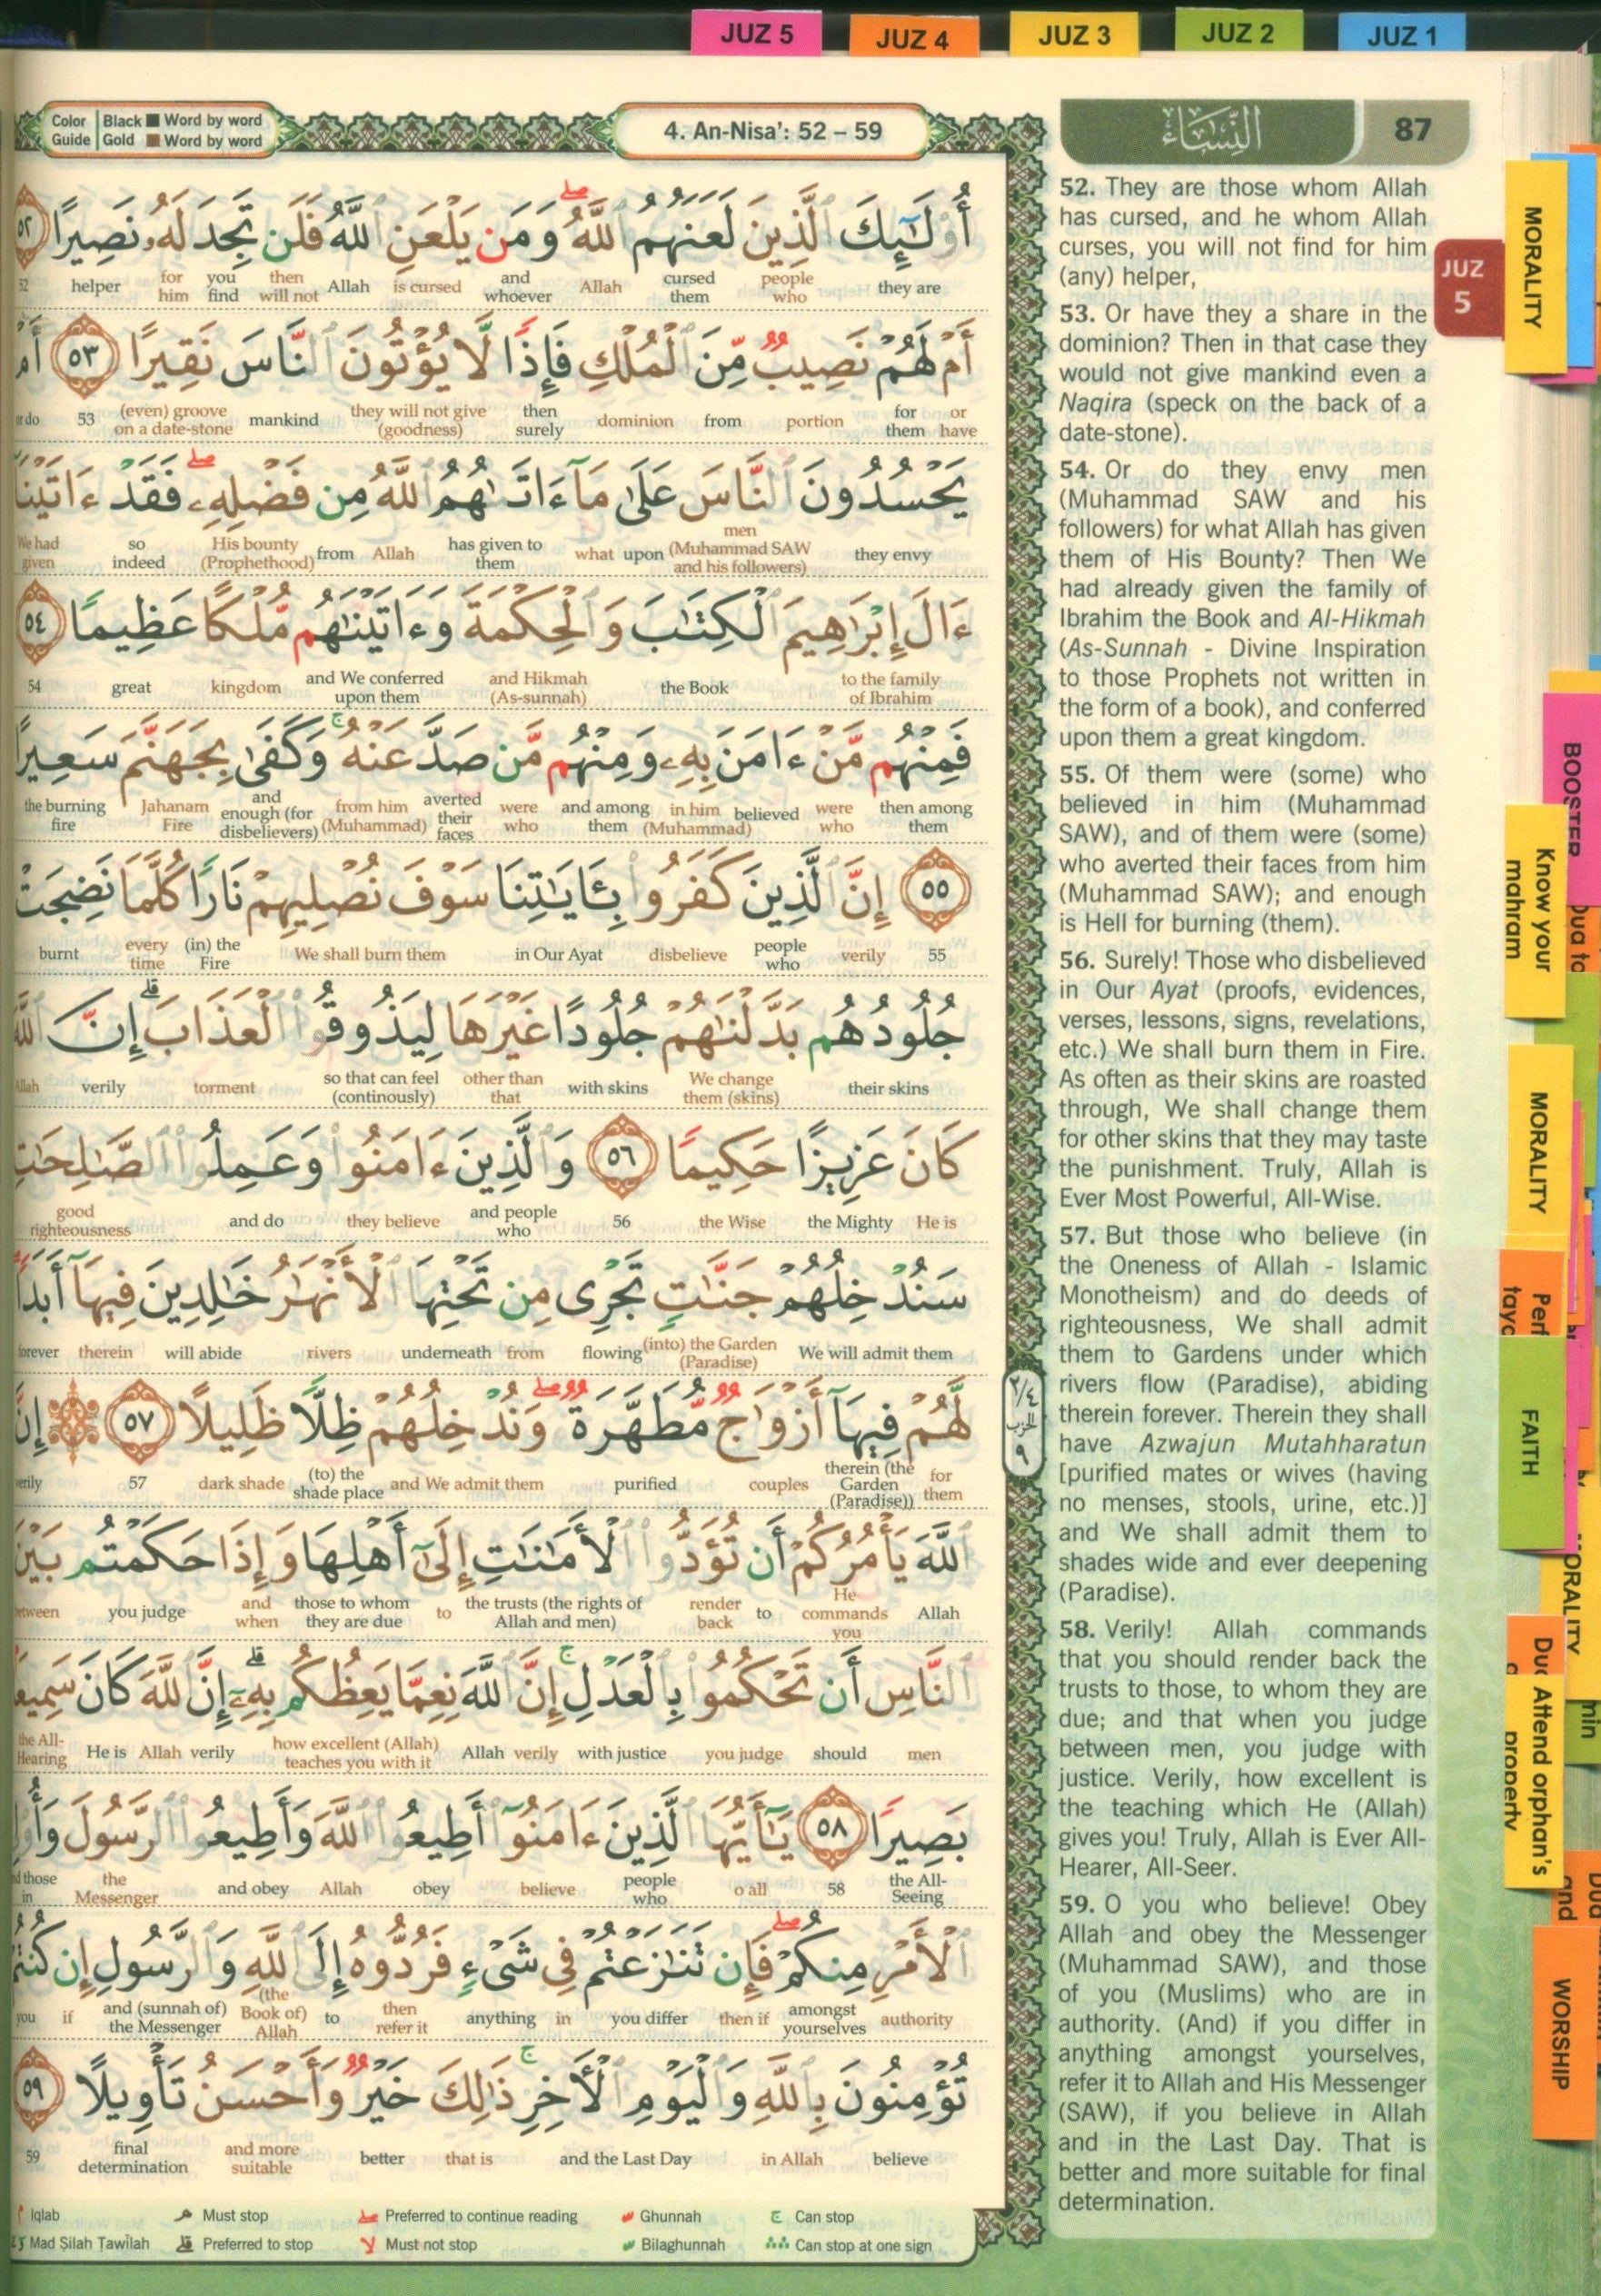 JUZ 5 JUZ 4 JUZ 3 JUZ 2 JUZ 1
Color Guide Black Word by word
Gold Word by word
4. An-Nisa': 52 – 59
النِّسَاء
87
أُو۟لَـٰٓئِكَ ٱلَّذِينَ لَعَنَهُمُ ٱللَّهُ ۖ وَمَن يَلْعَنِ ٱللَّهُ فَلَن تَجِدَ لَهُۥ نَصِيرًا ٥٢
they are people who cursed them Allah and whoever is cursed Allah then will not you find for him helper 52
أَمْ لَهُمْ نَصِيبٌ مِّنَ ٱلْمُلْكِ فَإِذًا لَّا يُؤْتُونَ ٱلنَّاسَ نَقِيرًا ٥٣ أَمْ
or have for them portion from dominion then surely they will not give (goodness) mankind (even) groove on a date-stone 53 or do
يَحْسُدُونَ ٱلنَّاسَ عَلَىٰ مَآ ءَاتَىٰهُمُ ٱللَّهُ مِن فَضْلِهِۦ ۖ فَقَدْ ءَاتَيْنَآ
they envy men (Muhammad SAW and his followers) upon what has given to them Allah from His bounty (Prophethood) so indeed We had given
ءَالَ إِبْرَٰهِيمَ ٱلْكِتَـٰبَ وَٱلْحِكْمَةَ وَءَاتَيْنَـٰهُم مُّلْكًا عَظِيمًا ٥٤
to the family of Ibrahim the Book and Hikmah (As-sunnah) and We conferred upon them kingdom great 54
فَمِنْهُم مَّنْ ءَامَنَ بِهِۦ وَمِنْهُم مَّن صَدَّ عَنْهُ ۚ وَكَفَىٰ بِجَهَنَّمَ سَعِيرًا
then among them were who believed in him (Muhammad) and among them were who averted their faces from him (Muhammad) and enough (for disbelievers) Jahanam Fire the burning fire
٥٥ إِنَّ ٱلَّذِينَ كَفَرُوا۟ بِـَٔايَـٰتِنَا سَوْفَ نُصْلِيهِمْ نَارًا كُلَّمَا نَضِجَتْ
55 verily people who disbelieve in Our Ayat We shall burn them (in) the Fire every time burnt
جُلُودُهُم بَدَّلْنَـٰهُمْ جُلُودًا غَيْرَهَا لِيَذُوقُوا۟ ٱلْعَذَابَ ۗ إِنَّ ٱللَّهَ
their skins We change them (skins) with skins other than that so that can feel (continously) torment verily Allah
كَانَ عَزِيزًا حَكِيمًا ٥٦ وَٱلَّذِينَ ءَامَنُوا۟ وَعَمِلُوا۟ ٱلصَّـٰلِحَـٰتِ
He is the Mighty the Wise 56 and people who they believe and do good righteousness
سَنُدْخِلُهُمْ جَنَّـٰتٍ تَجْرِى مِن تَحْتِهَا ٱلْأَنْهَـٰرُ خَـٰلِدِينَ فِيهَآ أَبَدًا
We will admit them (into) the Garden (Paradise) flowing from underneath rivers will abide therein forever
لَّهُمْ فِيهَآ أَزْوَٰجٌ مُّطَهَّرَةٌ ۖ وَنُدْخِلُهُمْ ظِلًّا ظَلِيلًا ٥٧ ۞ إِنَّ
for them therein (the Garden (Paradise)) couples purified and We admit them (to) the shade place dark shade 57 verily
ٱللَّهَ يَأْمُرُكُمْ أَن تُؤَدُّوا۟ ٱلْأَمَـٰنَـٰتِ إِلَىٰٓ أَهْلِهَا وَإِذَا حَكَمْتُم بَيْنَ
Allah He commands you to render back the trusts (the rights of Allah and men) to those to whom they are due and when you judge between
ٱلنَّاسِ أَن تَحْكُمُوا۟ بِٱلْعَدْلِ ۚ إِنَّ ٱللَّهَ نِعِمَّا يَعِظُكُم بِهِۦٓ ۗ إِنَّ ٱللَّهَ كَانَ سَمِيعًۢا
men should you judge with justice verily Allah how excellent (Allah) teaches you with it verily Allah He is the All-Hearing
بَصِيرًا ٥٨ يَـٰٓأَيُّهَا ٱلَّذِينَ ءَامَنُوٓا۟ أَطِيعُوا۟ ٱللَّهَ وَأَطِيعُوا۟ ٱلرَّسُولَ وَأُو۟لِى
the All-Seeing 58 o all people who believe obey Allah and obey the Messenger and those in
ٱلْأَمْرِ مِنكُمْ ۖ فَإِن تَنَـٰزَعْتُمْ فِى شَىْءٍ فَرُدُّوهُ إِلَى ٱللَّهِ وَٱلرَّسُولِ إِن كُنتُمْ
authority amongst yourselves then if you differ in anything then refer it to (the Book of) Allah and (sunnah of) the Messenger if you
تُؤْمِنُونَ بِٱللَّهِ وَٱلْيَوْمِ ٱلْـَٔاخِرِ ۚ ذَٰلِكَ خَيْرٌ وَأَحْسَنُ تَأْوِيلًا ٥٩
believe in Allah and the Last Day that is better and more suitable final determination 59
٣/٤ الحزب ٩
Iqlab Must stop Preferred to continue reading Ghunnah Can stop
Mad Silah Tawilah Preferred to stop Must not stop Bilaghunnah Can stop at one sign
52. They are those whom Allah
has cursed, and he whom Allah
curses, you will not find for him
(any) helper,
53. Or have they a share in the
dominion? Then in that case they
would not give mankind even a
Naqira (speck on the back of a
date-stone).
54. Or do they envy men
(Muhammad SAW and his
followers) for what Allah has given
them of His Bounty? Then We
had already given the family of
Ibrahim the Book and Al-Hikmah
(As-Sunnah - Divine Inspiration
to those Prophets not written in
the form of a book), and conferred
upon them a great kingdom.
55. Of them were (some) who
believed in him (Muhammad
SAW), and of them were (some)
who averted their faces from him
(Muhammad SAW); and enough
is Hell for burning (them).
56. Surely! Those who disbelieved
in Our Ayat (proofs, evidences,
verses, lessons, signs, revelations,
etc.) We shall burn them in Fire.
As often as their skins are roasted
through, We shall change them
for other skins that they may taste
the punishment. Truly, Allah is
Ever Most Powerful, All-Wise.
57. But those who believe (in
the Oneness of Allah - Islamic
Monotheism) and do deeds of
righteousness, We shall admit
them to Gardens under which
rivers flow (Paradise), abiding
therein forever. Therein they shall
have Azwajun Mutahharatun
[purified mates or wives (having
no menses, stools, urine, etc.)]
and We shall admit them to
shades wide and ever deepening
(Paradise).
58. Verily! Allah commands
that you should render back the
trusts to those, to whom they are
due; and that when you judge
between men, you judge with
justice. Verily, how excellent is
the teaching which He (Allah)
gives you! Truly, Allah is Ever All-
Hearer, All-Seer.
59. O you who believe! Obey
Allah and obey the Messenger
(Muhammad SAW), and those
of you (Muslims) who are in
authority. (And) if you differ in
anything amongst yourselves,
refer it to Allah and His Messenger
(SAW), if you believe in Allah
and in the Last Day. That is
better and more suitable for final
determination.
JUZ
5
MORALITY
BOOSTER
Know your
mahram
MORALITY
FAITH
Attend orphan's
property
WORSHIP